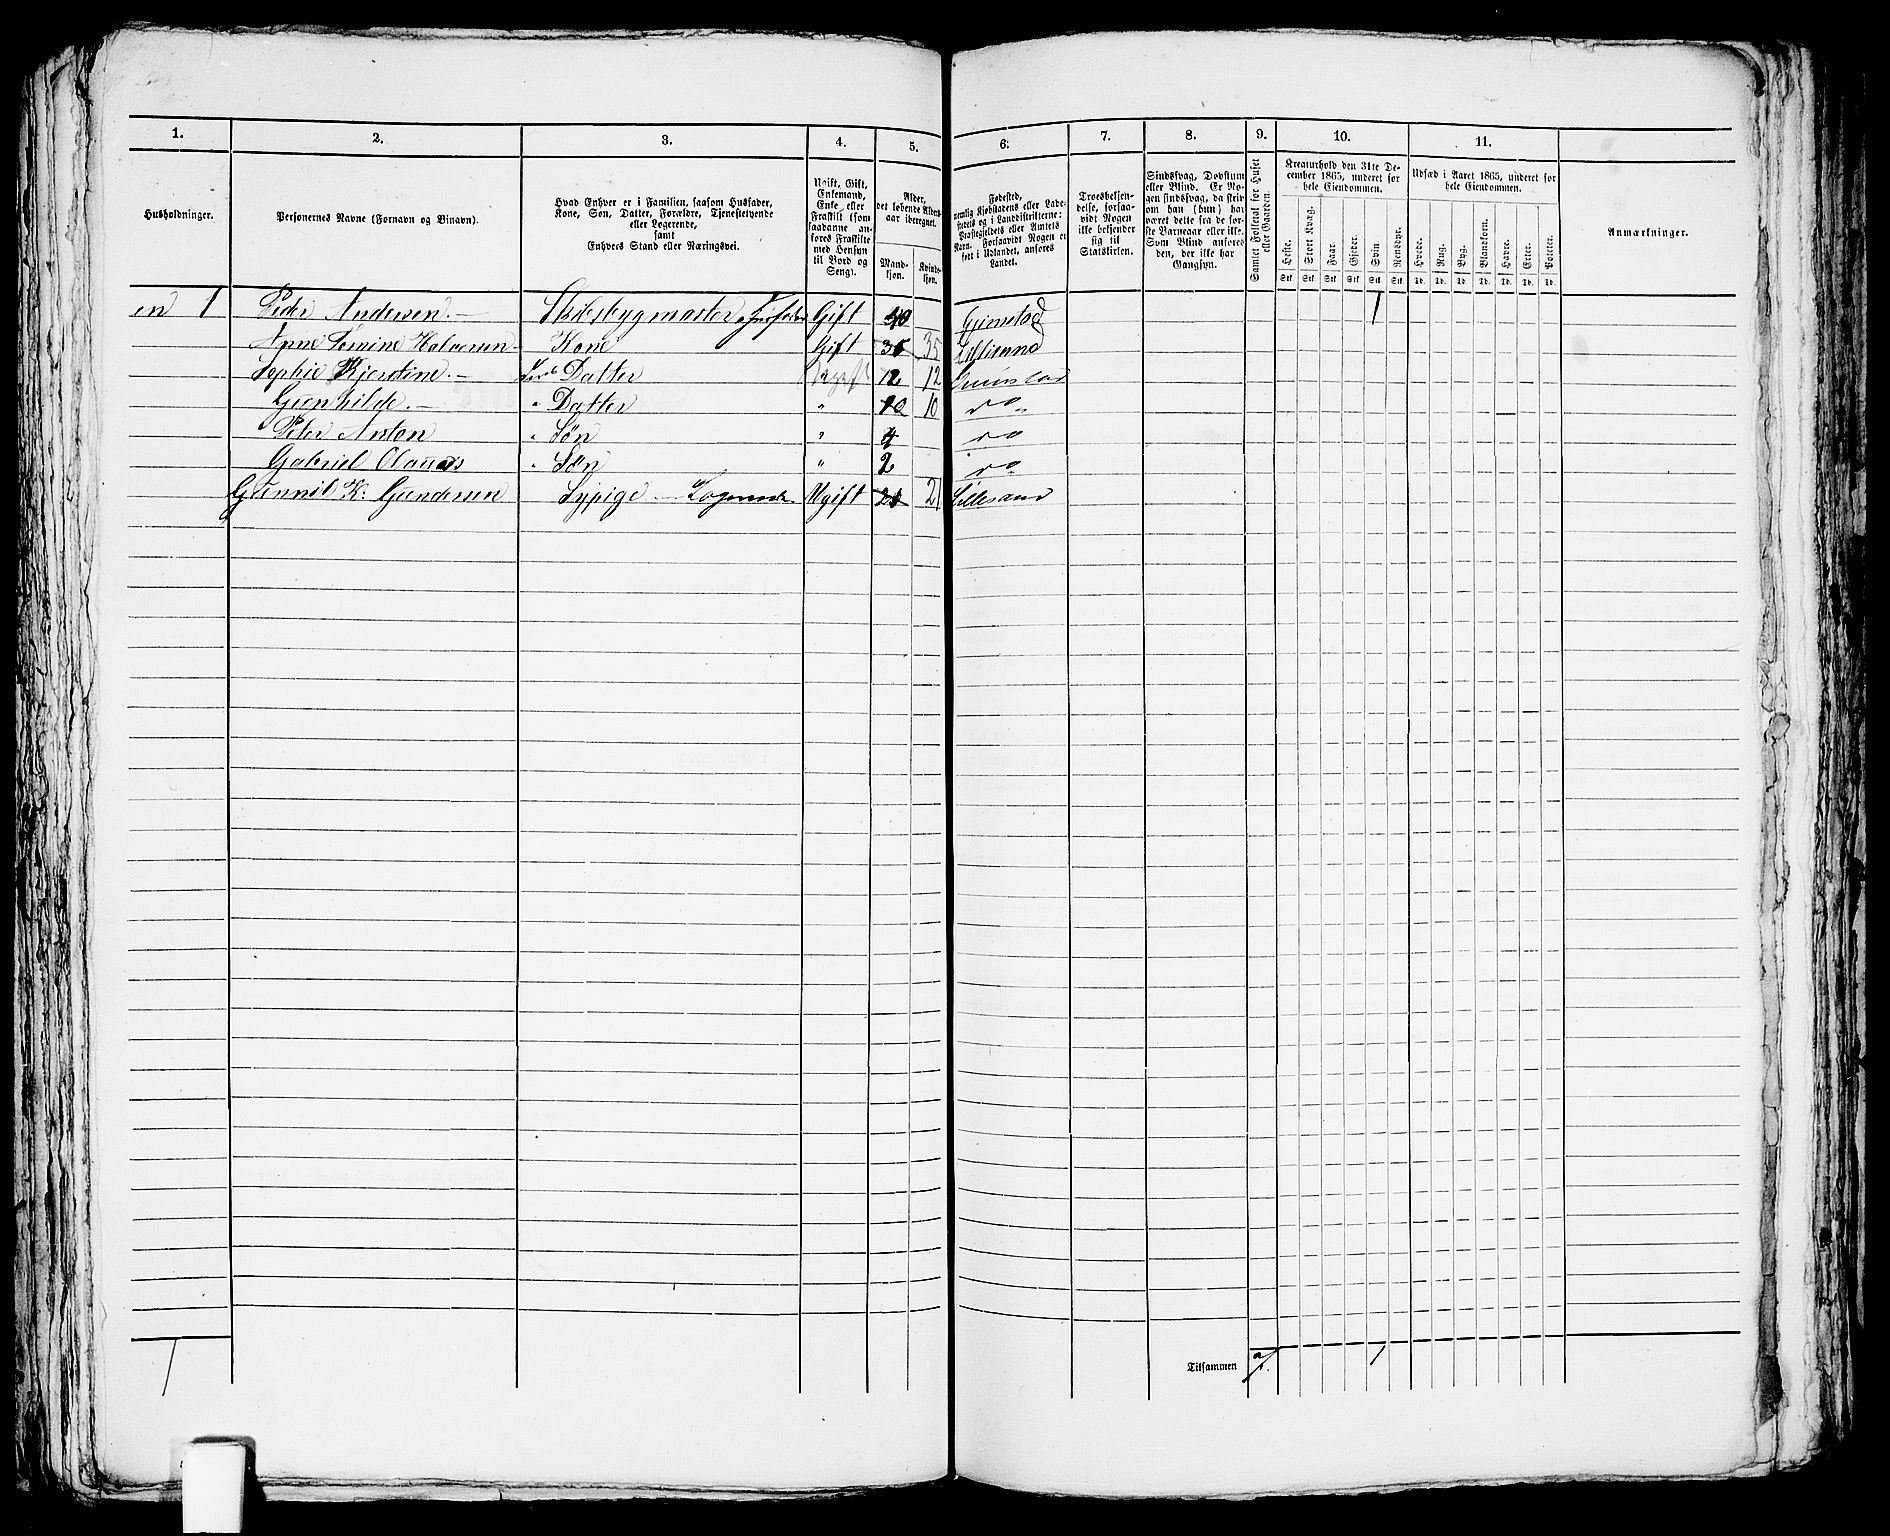 1. 2. 3. 4. 5. 6. 7. 8. 9. 10. 11.
Husholdninger.
Personernes Navne (Fornavn og Binavn).
Hvad Enhver er i Familien, saasom Husfader,
Kone, Søn, Datter, Forældre, Tjenestetyende
eller Logerende,
samt
Enhvers Stand eller Næringsvei.
Ugift, Gift,
Enkemand,
Enke eller
Fraskilt (som
saadanne an-
føres Fraskilte
med Hensyn
til Bord og
Seng).
Alder,
det løbende Alders-
aar iberegnet.
Mand-
kjøn.
Kvinde-
kjøn.
Fødested,
nemlig Kjøbstadens eller Lade-
stedets og i Landdistrikterne:
Præstegjeldets eller Amtets
Navn. Forsaavidt Nogen er
født i Udlandet, anføres
Landet.
Troesbekjen-
delse, forsaa-
vidt Nogen
ikke bekjender
sig til
Statskirken.
Sindssvag, Døvstum
eller Blind. Er No-
gen sindssvag, da skriv
om han (hun) har
været dette fra de før-
ste Barneaar eller ikke.
Som Blind anføres
den, der ikke har
Gangsyn.
Samlet Folketal for Huset
eller Gaarden.
Kreaturhold den 31te De-
cember 1865, underet for
hele Eiendommen.
Heste. Stort Kvæg. Faar. Gjeder. Sviin. Rensdyr.
Stk. Stk. Stk. Stk. Stk. Stk.
Udsæd i Aaret 1865, underet for
hele Eiendommen.
Hvede. Rug. Byg. Blandkorn. Havre. Erter. Poteter.
Td. Td. Td. Td. Td. Td. Td.
Anmærkninger.
en 1 Peder Andersen. — Skibsbygmester Husfader Gift 40 Grimstad 1
Anne Tomine Halvorsen Kone Gift 35 35 Lillesand
Sophie Kjerstine. — Datter Ugift 12 12 Grimstad
Gunhilde. — " Datter " 10 10 do
Peter Anton " Søn " 4 do
Gabriel Olaus " Søn " 2 do
Gunnil K. Gundersen Sypige — Logerende Ugift 21 Lillesand
1 Tilsammen 7. 1